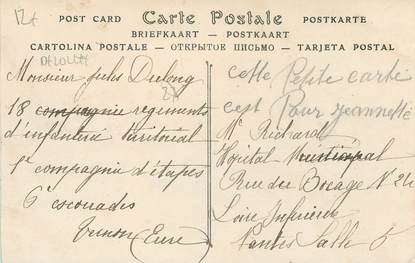 12t
POST CARD Carte Postale POSTKARTE
BRIEFKAART - POSTKAART
CARTOLINA POSTALE - ОТКРЫТОЕ ПИСЬМО - TARJETA POSTAL
Monsieur Jules Dulong
18 compagnie regiments
d'infanterie territorial
1e compagnie d'étapes
6 escouades
Vernon (Eure)
cette Petite carte
cest Pour jeannette
Mr Richard
Hôpital Municipal
Rue du Bocage N 24
Loire Inférieure
Nantes Salle 5